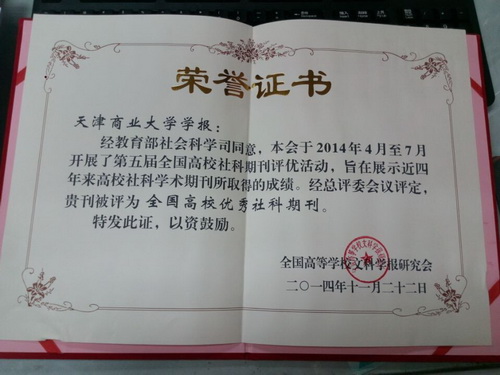 荣誉证书
天津商业大学学报：
经教育部社会科学司同意，本会于2014年4月至7月
开展了第五届全国高校社科期刊评优活动，旨在展示近四
年来高校社科学术期刊所取得的成绩。经总评委会议评定，
贵刊被评为 全国高校优秀社科期刊。
特发此证，以资鼓励。
全国高等学校文科学报研究会
二〇一四年十一月二十二日